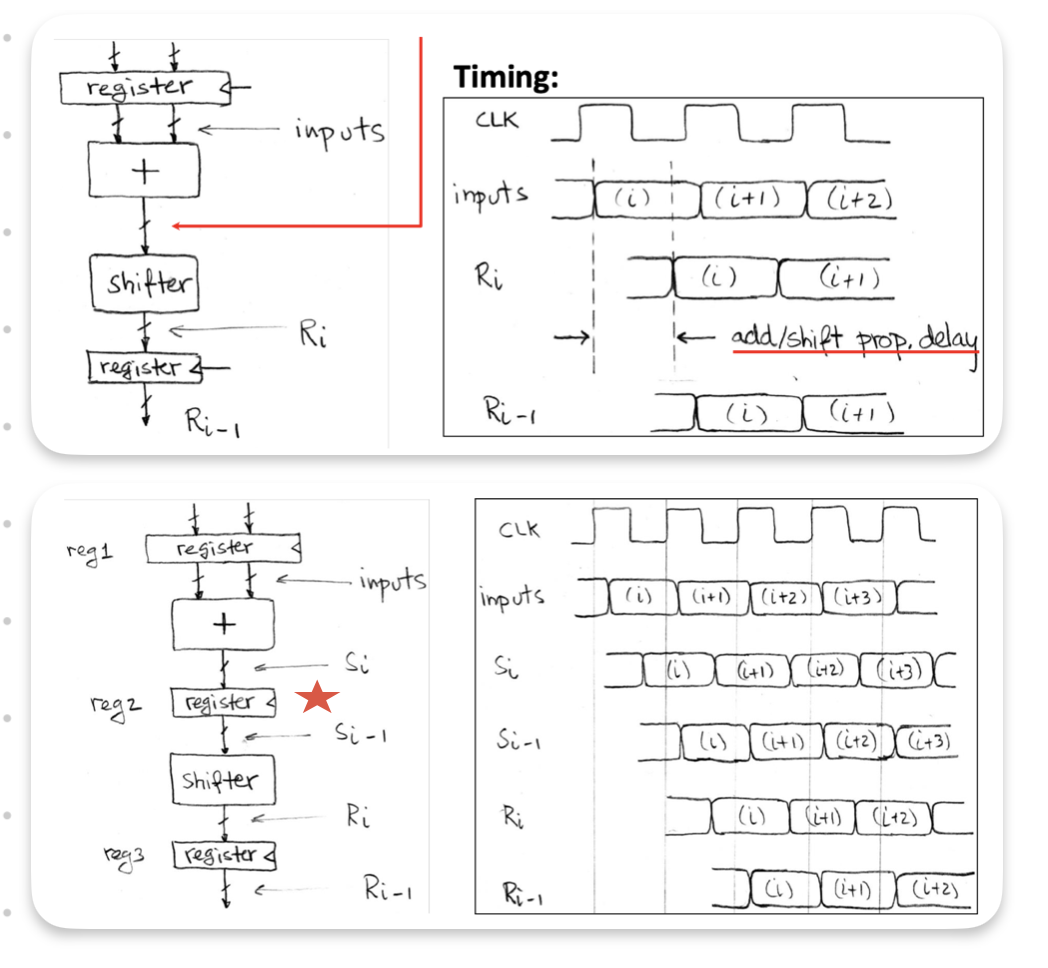 register
inputs
+
shifter
Ri
register
Ri-1
Timing:
CLK
inputs (i) (i+1) (i+2)
Ri (i) (i+1)
add/shift prop. delay
Ri-1 (i) (i+1)
reg1 register
inputs
+
Si
reg2 register
Si-1
shifter
Ri
reg3 register
Ri-1
CLK
inputs (i) (i+1) (i+2) (i+3)
Si (i) (i+1) (i+2) (i+3)
Si-1 (i) (i+1) (i+2) (i+3)
Ri (i) (i+1) (i+2)
Ri-1 (i) (i+1) (i+2)